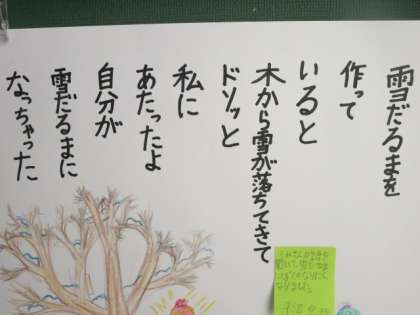 雪だるまを
作って
いると
木から雪が落ちてきて
ドソッと
私に
あたったよ
自分が
雪だるまに
なっちゃった